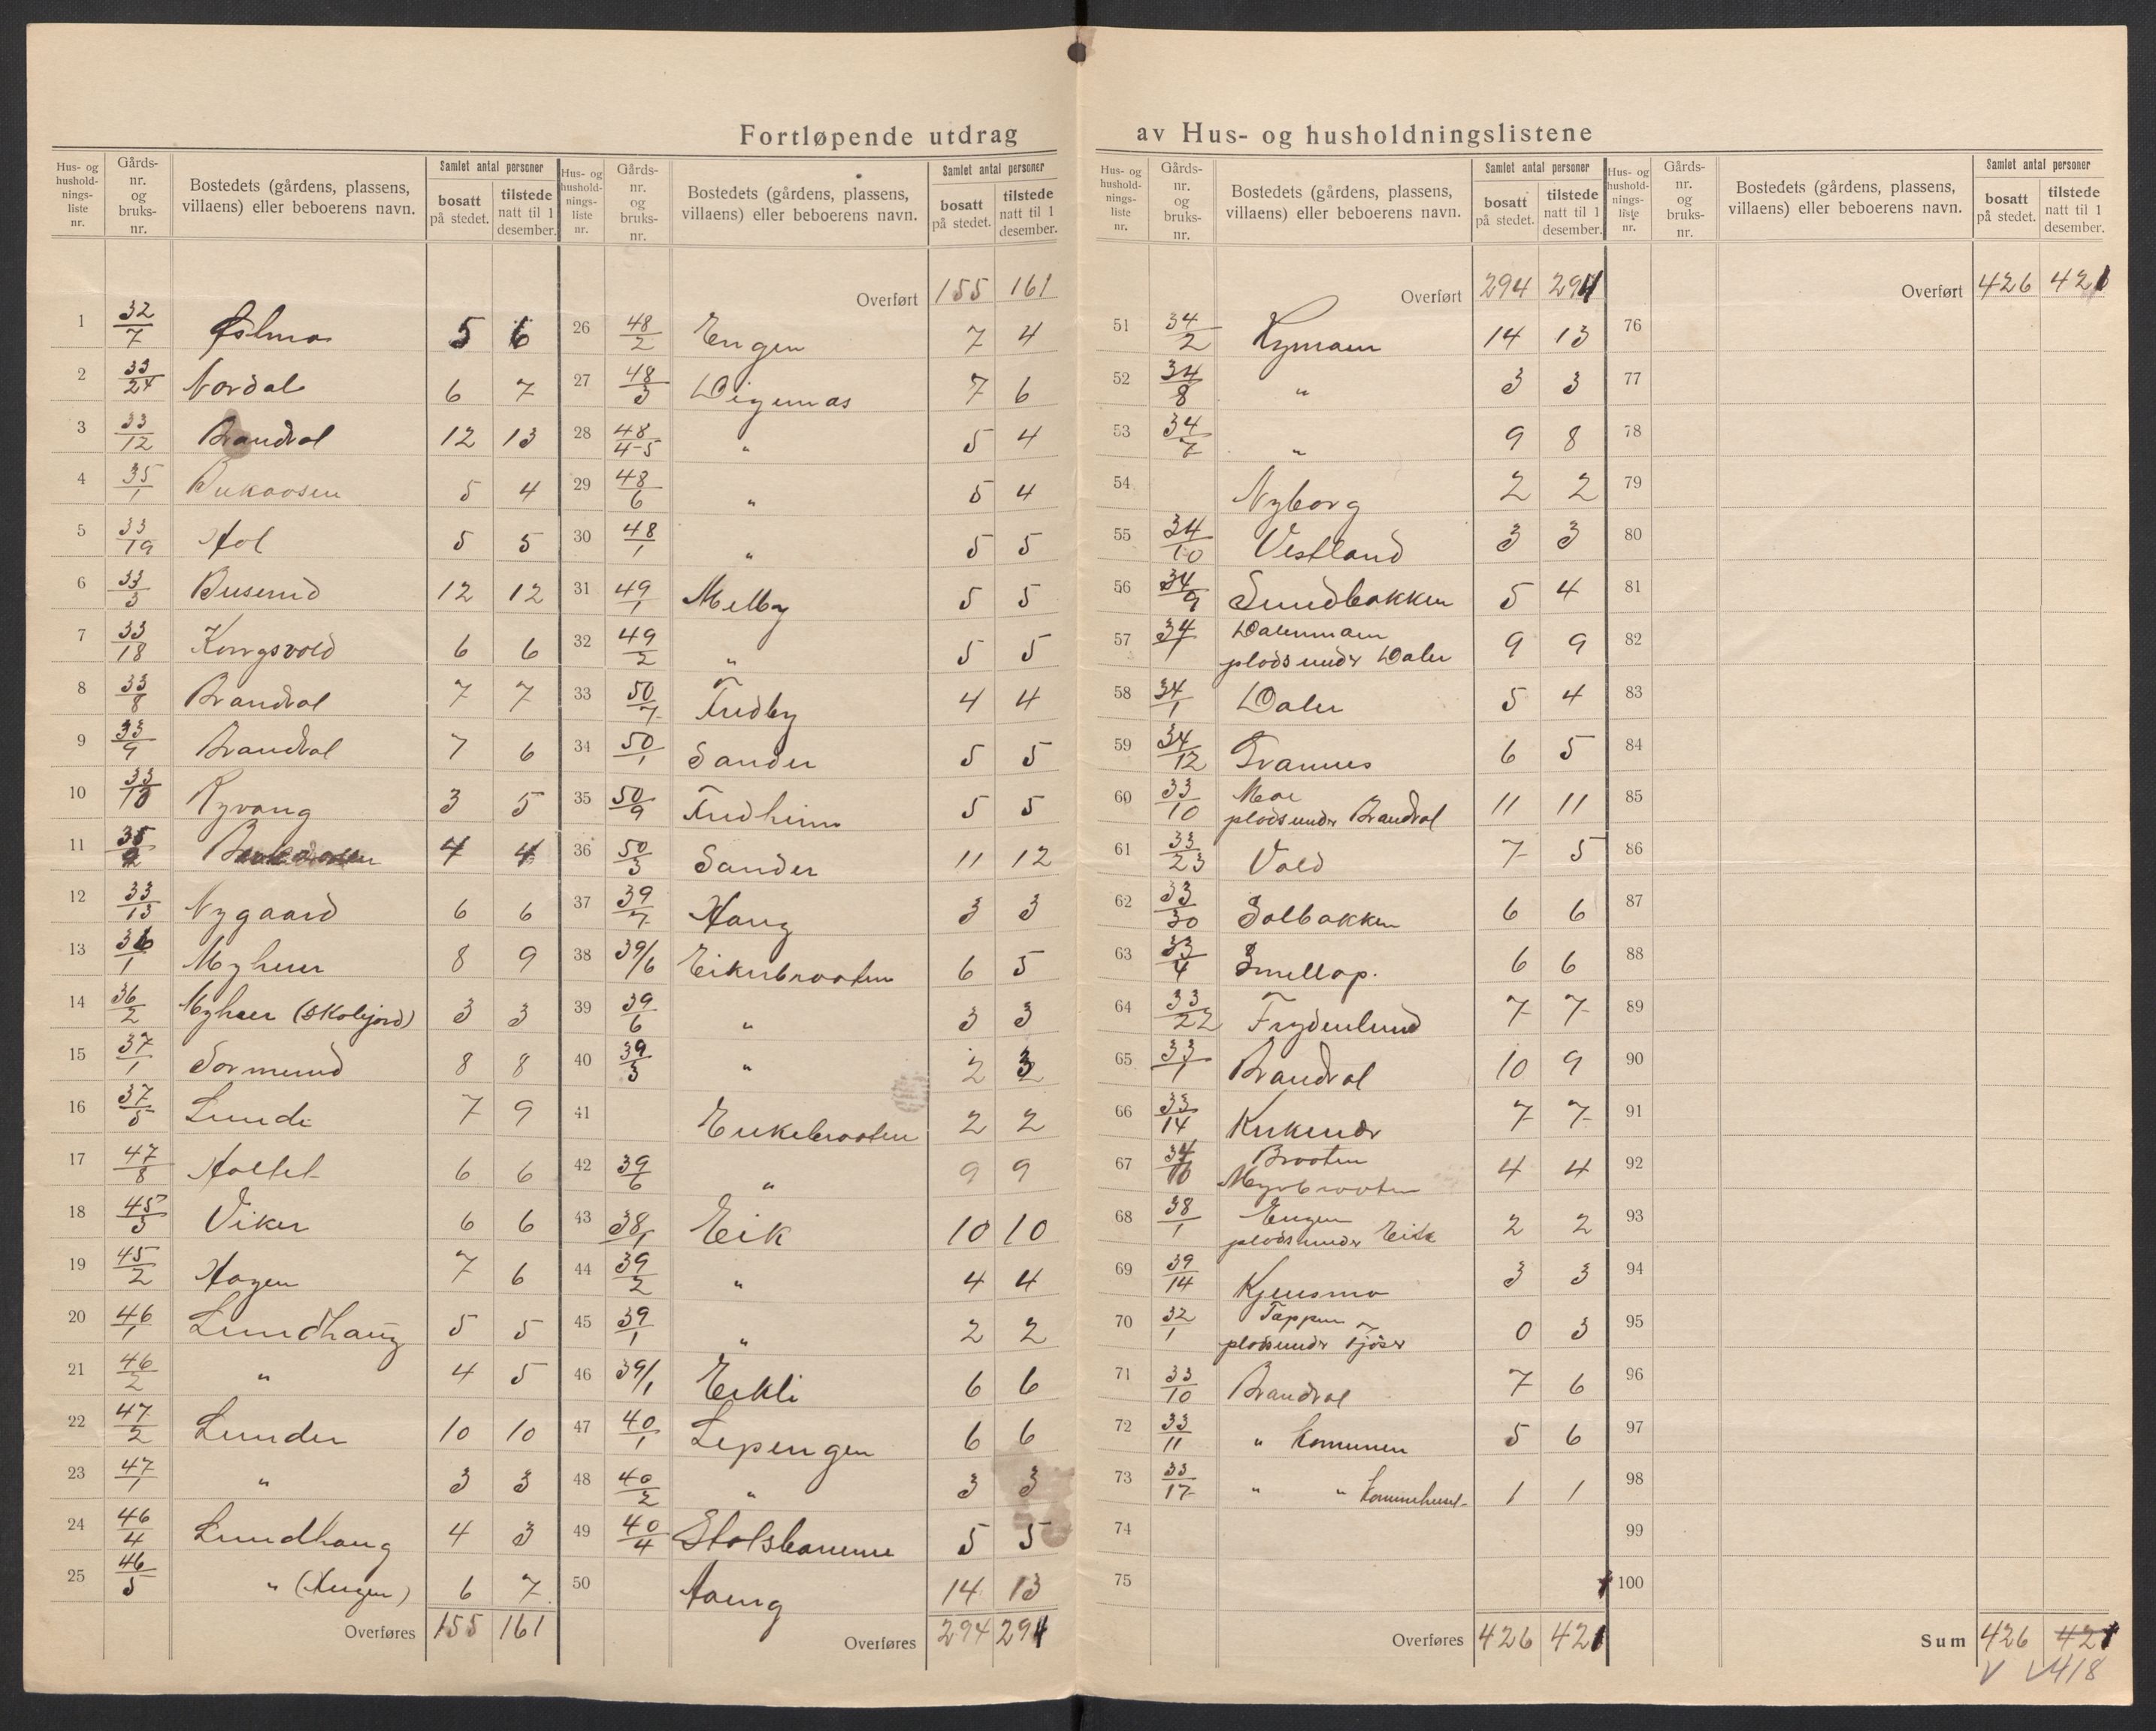 Fortløpende utdrag av Hus- og husholdningslistene
Hus- og husholdningsliste nr. Gårdsnr. og bruksnr. Bostedets (gårdens, plassens, villaens) eller beboerens navn. Samlet antal personer bosatt på stedet. tilstede natt til 1 desember.
1 32/7 5 6
2 33/24 Nordal 6 7
3 33/12 Brandval 12 13
4 35/1 5 4
5 33/19 Hol 5 5
6 33/3 Buserud 12 12
7 33/18 Kongsvold 6 6
8 33/8 Brandval 7 7
9 33/9 Brandval 7 6
10 33/10 Ryvang 3 5
11 4 4
12 33/13 Nygaard 6 6
13 36/1 Myhrer 8 9
14 36/2 Myhrer (Skolejord) 3 3
15 37/1 Sormund 8 8
16 37/5 Lunde 7 9
17 47/8 Holtet 6 6
18 45/3 Viker 6 6
19 45/2 Hagen 7 6
20 46/1 Lundhaug 5 5
21 46/2 " 4 5
22 47/2 Lunder 10 10
23 47/1 " 3 3
24 46/4 Lundhaug 4 3
25 46/5 " 6 7
Overføres 155 161
Hus- og husholdningsliste nr. Gårdsnr. og bruksnr. Bostedets (gårdens, plassens, villaens) eller beboerens navn. Samlet antal personer bosatt på stedet. tilstede natt til 1 desember.
Overført 155 161
26 48/2 Engen 7 4
27 48/3 Digernæs 7 6
28 48/4-5 " 5 4
29 48/6 " 5 4
30 48/1 " 5 5
31 49/1 Melby 5 5
32 49/2 " 5 5
33 50/7 Fredby 4 4
34 50/1 Sander 5 5
35 50/9 Fredheim 5 5
36 50/3 Sander 11 12
37 39/7 Haug 3 3
38 39/6 Eikerbraaten 6 5
39 39/6 " 3 3
40 39/3 " 2 3
41 Eikebraaten 2 2
42 39/6 " 9 9
43 38/1 Eik 10 10
44 39/2 " 4 4
45 39/1 " 2 2
46 39/1 Eikli 6 6
47 40/1 Lepengen 6 6
48 40/2 " 3 3
49 40/4 5 5
50 Haug 14 13
Overføres 294 291
Hus- og husholdningsliste nr. Gårdsnr. og bruksnr. Bostedets (gårdens, plassens, villaens) eller beboerens navn. Samlet antal personer bosatt på stedet. tilstede natt til 1 desember.
Overført 294 291
51 34/2 Rymoen 14 13
52 34/8 " 3 3
53 34/7 " 9 8
54 Nyborg 2 2
55 34/10 Vestland 3 3
56 34/9 Sundbakken 5 4
57 34/1 Dalermoen
plads under Daler 9 9
58 34/1 Daler 5 4
59 34/12 Grannes 6 5
60 33/10 Moe
plads under Brandval 11 11
61 33/23 Vold 7 5
62 33/30 Solbakken 6 6
63 33/4 Smellop. 6 6
64 33/22 Frydenlund 7 7
65 33/1 Brandval 10 9
66 33/14 Kirkerud 7 7
67 34/10 Braaten
Myrbraaten 4 4
68 38/1 Engen
plads under Eik 2 2
69 39/14 Kjensmo 3 3
70 32/1 Tappen
plads under Tjöser 0 3
71 33/10 Brandval 7 6
72 33/11 " Komunen 5 6
73 33/17 " " 1 1
74
75
Overføres 426 421
Hus- og husholdningsliste nr. Gårdsnr. og bruksnr. Bostedets (gårdens, plassens, villaens) eller beboerens navn. Samlet antal personer bosatt på stedet. tilstede natt til 1 desember.
Overført 426 421
76
77
78
79
80
81
82
83
84
85
86
87
88
89
90
91
92
93
94
95
96
97
98
99
100
Sum 426 421
418